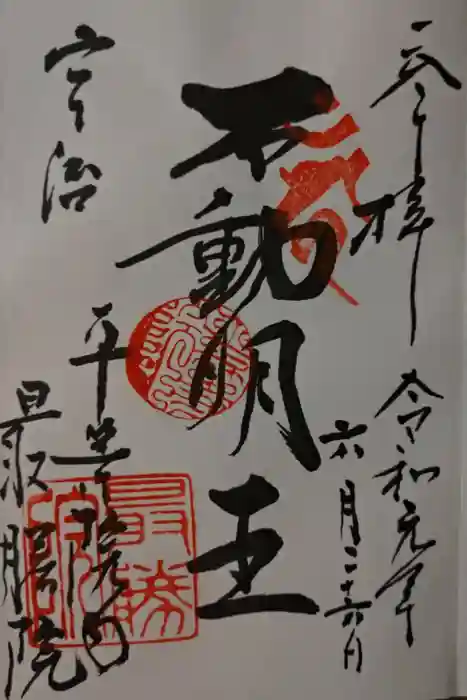 奉拝
令和元年
六月二十六日
不動明王
宇治
平等院内
最勝院
最勝院